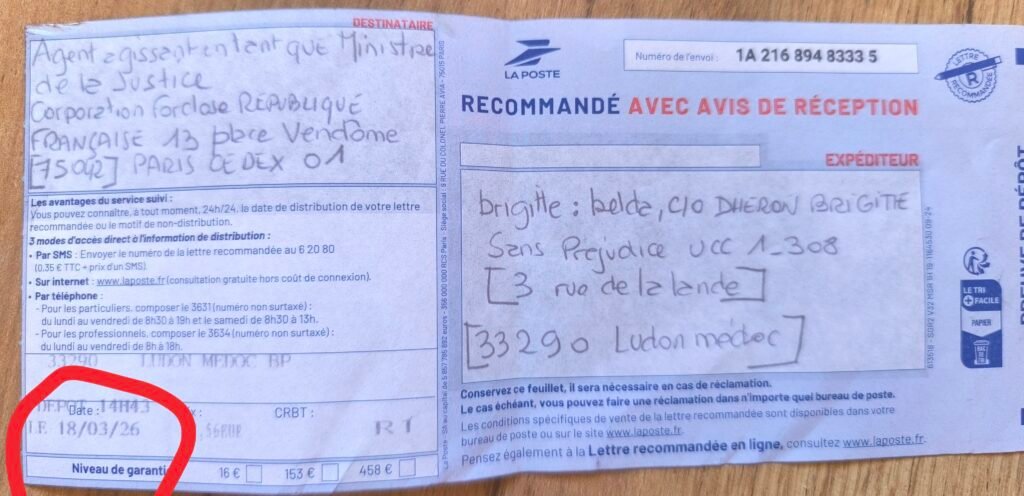 DESTINATAIRE
Agent agissant en tant que Ministre
de la Justice
Corporation forclose REPUBLIQUE
FRANÇAISE 13 place Vendôme
[75042] PARIS CEDEX 01
Les avantages du service suivi :
Vous pouvez connaître, à tout moment, 24h/24, la date de distribution de votre lettre
recommandée ou le motif de non-distribution.
3 modes d'accès direct à l'information de distribution :
• Par SMS : Envoyer le numéro de la lettre recommandée au 6 20 80
(0,35 € TTC + prix d'un SMS).
• Sur internet : www.laposte.fr (consultation gratuite hors coût de connexion).
• Par téléphone :
- Pour les particuliers, composer le 3631 (numéro non surtaxé) :
du lundi au vendredi de 8h30 à 19h et le samedi de 8h30 à 13h.
- Pour les professionnels, composer le 3634 (numéro non surtaxé) :
du lundi au vendredi de 8h à 18h.
33290 LUDON MEDOC BP
DEPOT 14H43
Date :
CRBT :
LE 18/03/26
R1
Niveau de garanti
16 €
153 €
458 €
LA POSTE
Numéro de l'envoi : 1A 216 894 8333 5
LETTRE
R
RECOMMANDÉE
RECOMMANDÉ AVEC AVIS DE RÉCEPTION
EXPÉDITEUR
brigitte : belda, C/O DHERON BRIGITTE
Sans Préjudice UCC 1_308
[3 rue de la lande]
[33290 Ludon medoc]
Conservez ce feuillet, il sera nécessaire en cas de réclamation.
Le cas échéant, vous pouvez faire une réclamation dans n'importe quel bureau de poste.
Les conditions spécifiques de vente de la lettre recommandée sont disponibles dans votre
bureau de poste ou sur le site www.laposte.fr.
Pensez également à la Lettre recommandée en ligne, consultez www.laposte.fr.
LE TRI
+ FACILE
PAPIER
BAC DE TRI
PREUVE DE DÉPÔT